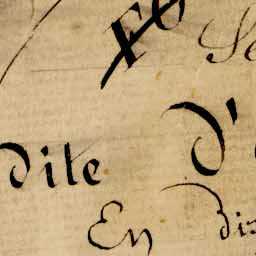 Se
dite D'
En di